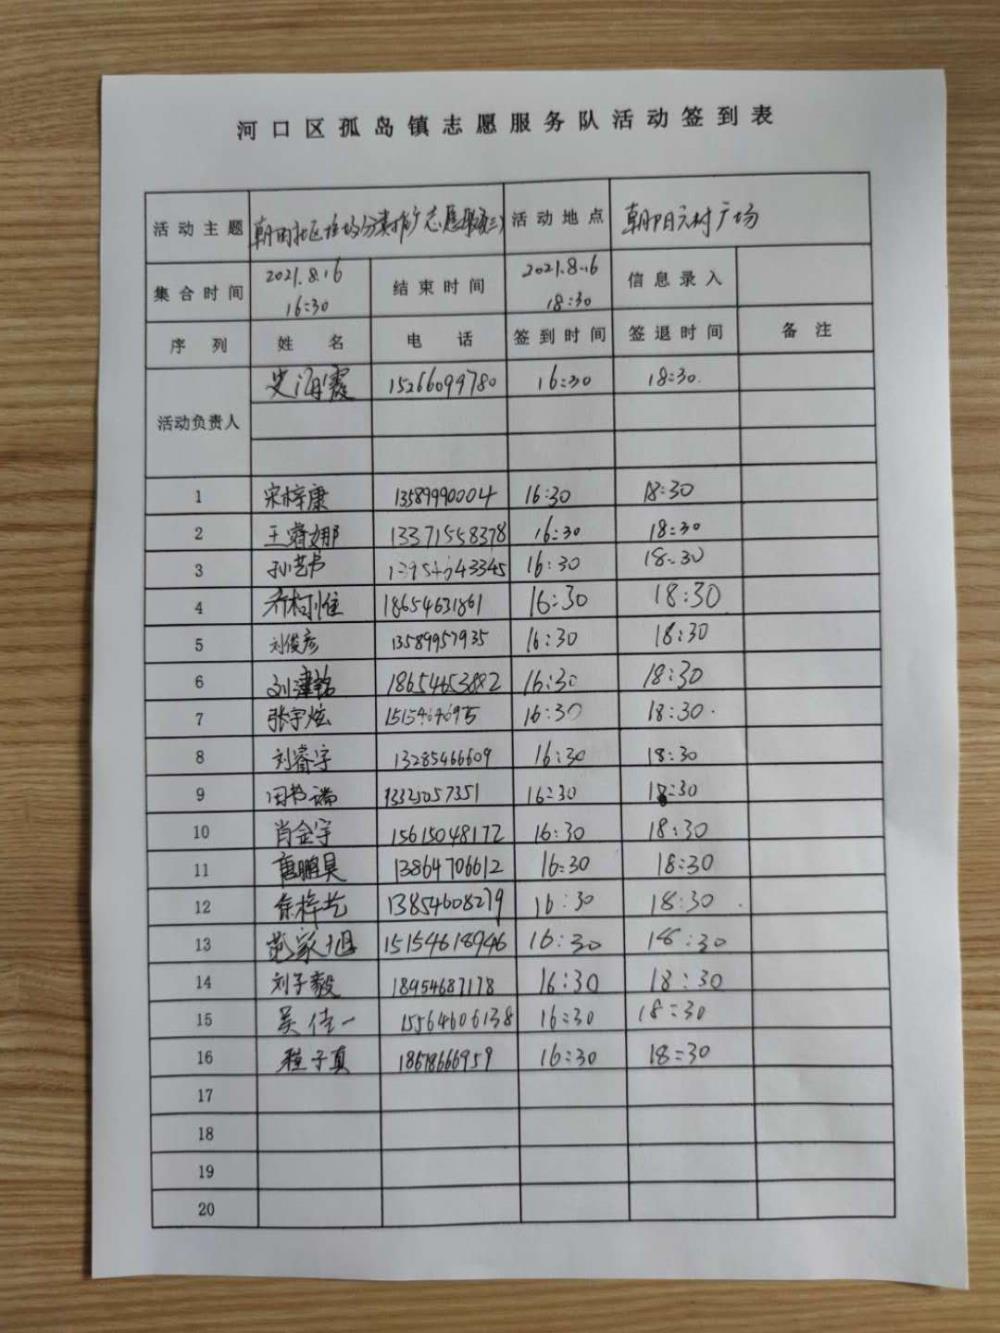 河口区孤岛镇志愿服务队活动签到表
活动主题 朝阳社区垃圾分类推广志愿服务(三) 活动地点 朝阳六村广场
集合时间 2021.8.16 16:30 结束时间 2021.8.16 18:30 信息录入
序列 姓名 电话 签到时间 签退时间 备注
活动负责人 史海霞 15266099780 16:30 18:30.
1 宋梓康 13589990004 16:30 18:30
2 王睿娜 13371558378 16:30 18:30
3 孙艺书 16:30 18:30
4 18654631861 16:30 18:30
5 刘俊彦 13589957935 16:30 18:30
6 刘津铭 18654653882 16:30 18:30
7 张宇炫 16:30 18:30.
8 刘睿宇 13285466609 16:30 18:30
9 田书瑞 13325057351 16:30 18:30
10 肖金宇 15615048172 16:30 18:30
11 唐鹏昊 13864706612 16:30 18:30
12 徐梓艺 13854608279 16:30 18:30
13 范家旭 15154618946 16:30 18:30
14 刘子毅 18954687178 16:30 18:30
15 吴佳一 15564606138 16:30 18:30
16 程子真 18678666959 16:30 18:30
17
18
19
20